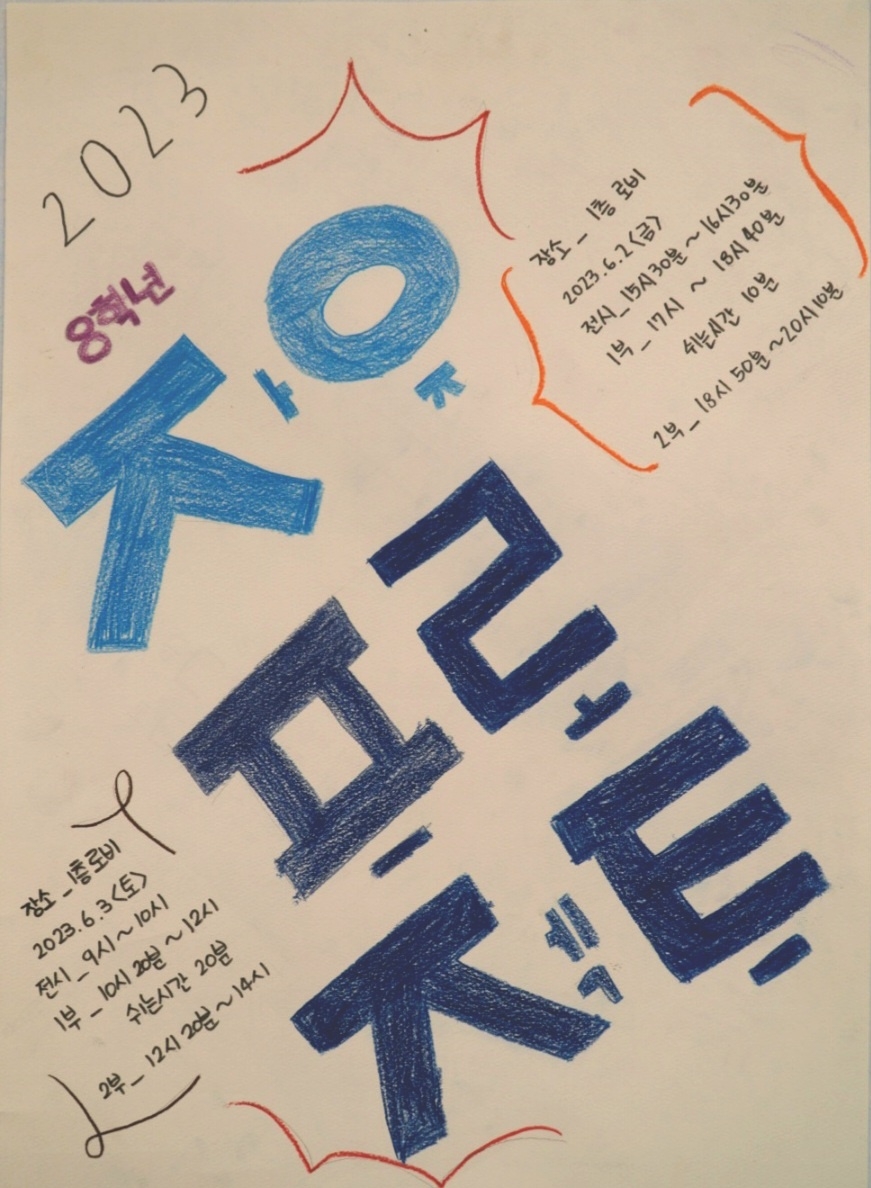 2023
8학년
자유
프로젝트
장소_ 1층 로비
2023.6.2<금>
전시_15시30분~16시30분
1부_ 17시 ~ 18시 40분
쉬는시간 10분
2부_ 18시 50분~20시10분
장소_1층로비
2023.6.3<토>
전시_9시~10시
1부_ 10시 20분~12시
쉬는시간 20분
2부_ 12시 20분~14시